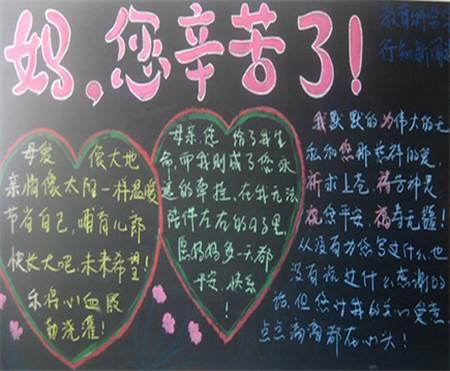 妈,您辛苦了!
教育科学
行知新闻
母爱 像大地
亲情像太阳一样温暖
节省自己,哺育儿郎
快长大吧,未来希望!
乐将心血展
勤浇灌!
母亲,您给了我生
命,而我则成了您永
远的牵挂,在我无法
陪伴左右的日子里,
愿妈妈每一天都
平安、快乐
!
我默默的为伟大的无
私的您那慈祥的爱,
祈求上苍,祷告神灵
祝您平安,福寿无疆!
从没有为您写过什么,也
没有说过什么感谢的
话,但您对我的关心爱意
点点滴滴都在心头!